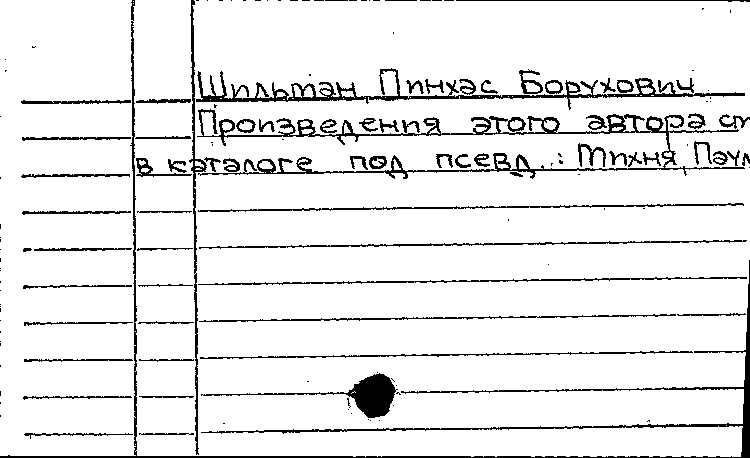 Шильман, Пинхас Борухович
Произведения этого автора ст
в каталоге под псевд.: Михня, Паул